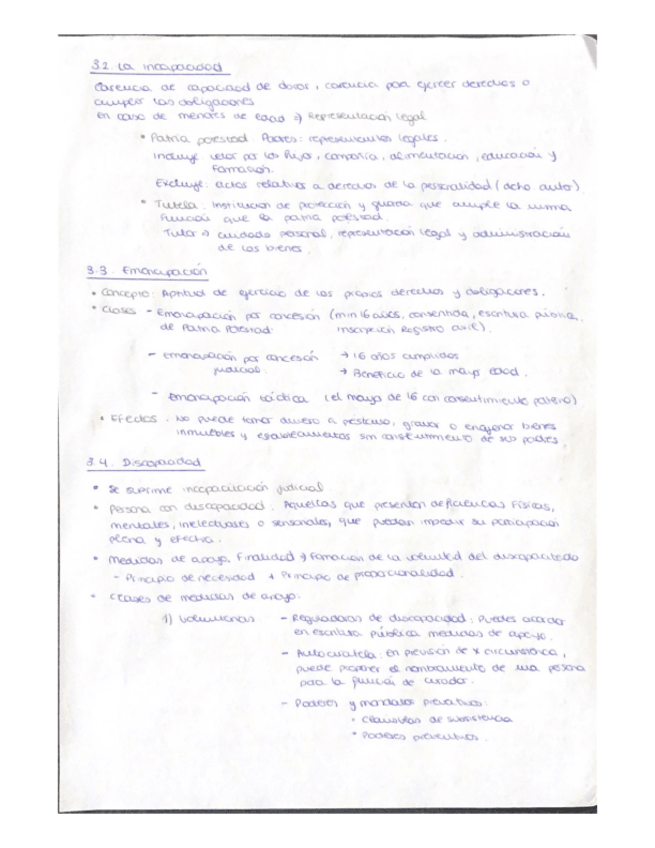 3.2. La incapacidad
Carencia de capacidad de obrar, carencia para ejercer derechos o
cumplir las obligaciones
en caso de menores de edad → Representación legal
• Patria potestad. Padres: representantes legales.
Incluye velar por los hijos, compañía, alimentación, educación y
formación.
Excluye: actos relativos a derechos de la personalidad (dcho. autor)
• Tutela: Institución de protección y guarda que cumple la misma
función que la patria potestad.
Tutor → cuidado personal, representación legal y administración
de los bienes.
3.3. Emancipación
• Concepto: Aptitud de ejercicio de los propios derechos y obligaciones.
• Clases - Emancipación por concesión (min 16 años, consentida, escritura pública,
de Patria Potestad. inscripción Registro civil).
- Emancipación por concesión → 16 años cumplidos
judicial. → Beneficio de la mayor edad.
- Emancipación táctica (el mayor de 16 con consentimiento paterno)
• Efectos. No puede tomar dinero a préstamo, gravar o enajenar bienes
inmuebles y establecimientos sin consentimiento de sus padres.
3.4. Discapacidad
• Se suprime incapacitación judicial.
• Persona con discapacidad. Aquellas que presentan deficiencias físicas,
mentales, intelectuales o sensoriales, que puedan impedir su participación
plena y efectiva.
• Medidas de apoyo. Finalidad → Formación de la voluntad del discapacitado
- Principio de necesidad + Principio de proporcionalidad.
• Clases de medidas de apoyo:
1) Voluntarias - Reguladoras de discapacidad: Puedes acordar
en escritura pública medidas de apoyo.
- Autocuratela: en previsión de x circunstancia,
puede proponer el nombramiento de una persona
para la función de curador.
- Poderes y mandatos preventivos:
• Cláusulas de subsistencia
• Poderes preventivos.